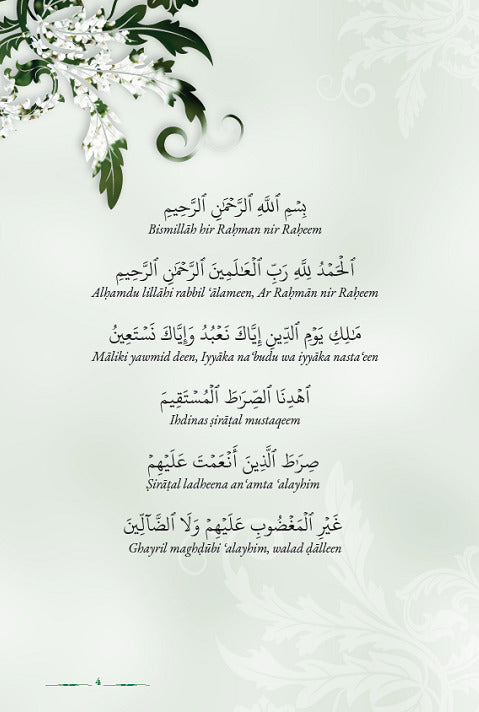 بِسْمِ ٱللَّهِ ٱلرَّحْمَٰنِ ٱلرَّحِيمِ
Bismillāh hir Raḥman nir Raḥeem
ٱلْحَمْدُ لِلَّهِ رَبِّ ٱلْعَـٰلَمِينَ ٱلرَّحْمَٰنِ ٱلرَّحِيمِ
Alḥamdu lillāhi rabbil ‘ālameen, Ar Raḥmān nir Raḥeem
مَـٰلِكِ يَوْمِ ٱلدِّينِ إِيَّاكَ نَعْبُدُ وَإِيَّاكَ نَسْتَعِينُ
Māliki yawmid deen, Iyyāka na‘budu wa iyyāka nasta‘een
ٱهْدِنَا ٱلصِّرَٰطَ ٱلْمُسْتَقِيمَ
Ihdinas ṣirāṭal mustaqeem
صِرَٰطَ ٱلَّذِينَ أَنْعَمْتَ عَلَيْهِمْ
Ṣirāṭal ladheena an‘amta ‘alayhim
غَيْرِ ٱلْمَغْضُوبِ عَلَيْهِمْ وَلَا ٱلضَّآلِّينَ
Ghayril maghḍūbi ‘alayhim, walad ḍālleen
4